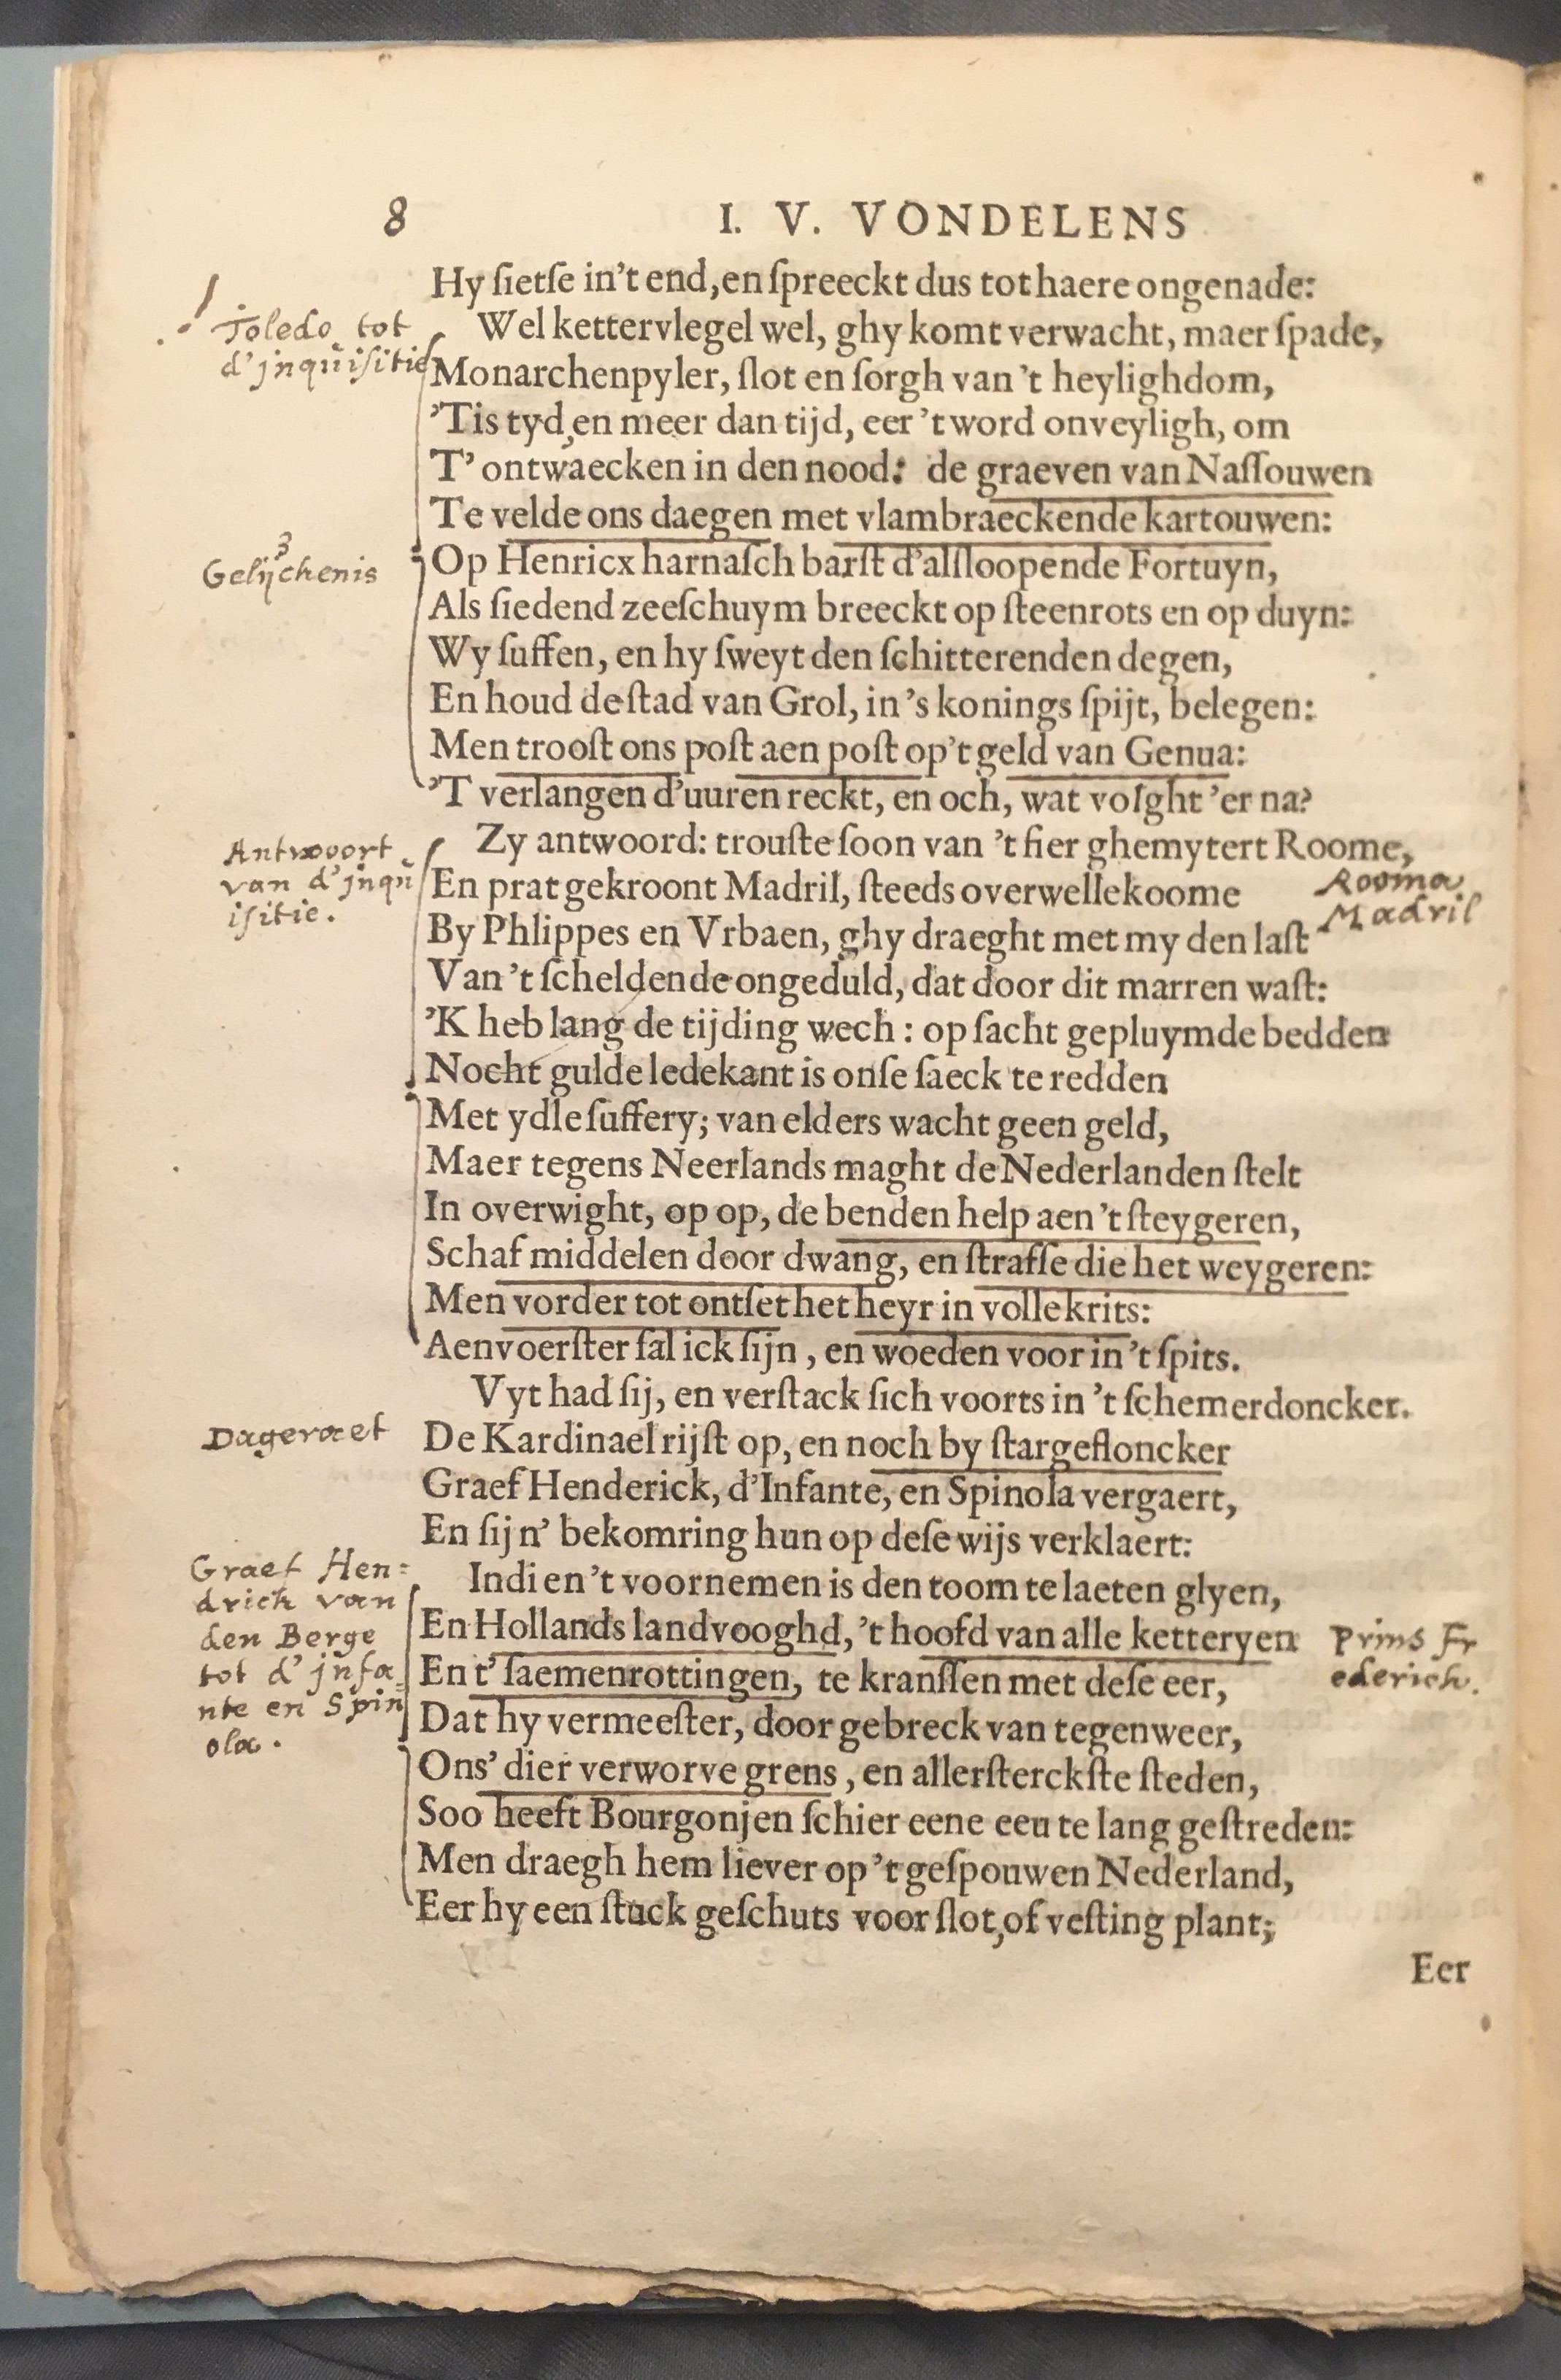 8 I. V. VONDELENS
Hy ſietſe in't end, en ſpreeckt dus tot haere ongenade:
! Toledo tot
d'jnquiſitie
Wel kettervlegel wel, ghy komt verwacht, maer ſpade,
Monarchenpyler, ſlot en ſorgh van 't heylighdom,
'Tis tyd, en meer dan tijd, eer 't word onveyligh, om
T' ontwaecken in den nood: de graeven van Naſſouwen
Te velde ons daegen met vlambraeckende kartouwen:
3
Gelijckenis
Op Henricx harnaſch barſt d'alſloopende Fortuyn,
Als ſiedend zeeſchuym breeckt op ſteenrots en op duyn:
Wy ſuffen, en hy ſweyt den ſchitterenden degen,
En houd de ſtad van Grol, in 's konings ſpijt, belegen:
Men trooſt ons poſt aen poſt op't geld van Genua:
'T verlangen d'uuren reckt, en och, wat volght 'er na?
Antwoort
van d'jnqu
iſitie.
Zy antwoord: trouſte ſoon van 't fier ghemytert Roome,
En prat gekroont Madril, ſteeds overwellekoome
Rooma
Madril
By Phlippes en Vrbaen, ghy draeght met my den laſt
Van 't ſcheldende ongeduld, dat door dit marren waſt:
'K heb lang de tijding wech: op ſacht gepluymde bedden
Nocht gulde ledekant is onſe ſaeck te redden
Met ydle ſuffery; van elders wacht geen geld,
Maer tegens Neerlands maght de Nederlanden ſtelt
In overwight, op op, de benden help aen 't ſteygeren,
Schaf middelen door dwang, en ſtraffe die het weygeren:
Men vorder tot ontſet het heyr in volle krits:
Aenvoerſter ſal ick ſijn, en woeden voor in 't ſpits.
Vyt had ſij, en verſtack ſich voorts in 't ſchemerdoncker.
Dageraet
De Kardinael rijſt op, en noch by ſtargefloncker
Graef Henderick, d'Infante, en Spinola vergaert,
En ſijn' bekomring hun op deſe wijs verklaert:
Graef Hen=
drick van
den Berge
tot d'jnfa=
nte en Spin
ola.
Indien 't voornemen is den toom te laeten glyen,
En Hollands landvooghd, 't hoofd van alle ketteryen
Prins Fr
ederick.
En t' ſaemenrottingen, te kranſſen met deſe eer,
Dat hy vermeeſter, door gebreck van tegenweer,
Ons' dier verworve grens, en allerſterckſte ſteden,
Soo heeft Bourgonjen ſchier eene eeu te lang geſtreden:
Men draegh hem liever op 't geſpouwen Nederland,
Eer hy een ſtuck geſchuts voor ſlot, of veſting plant;
Eer